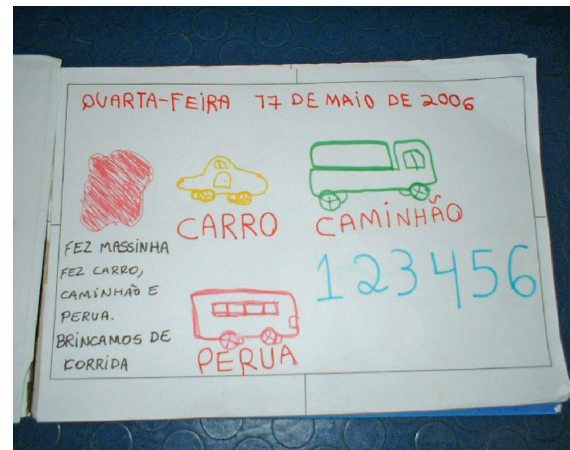 QUARTA-FEIRA 17 DE MAIO DE 2006
CARRO
CAMINHÃO
FEZ MASSINHA
FEZ CARRO,
CAMINHÃO E
PERUA.
BRINCAMOS DE
CORRIDA
1 2 3 4 5 6
PERUA